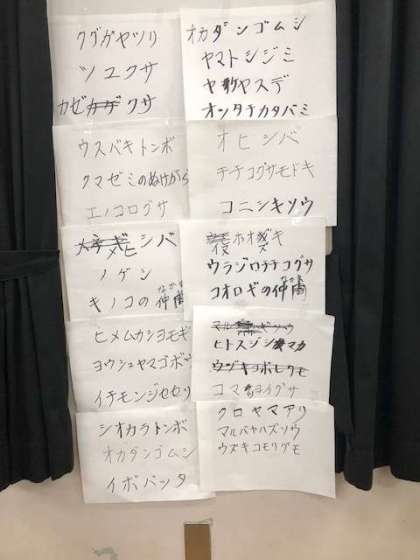 クグガヤツリ
ツユクサ
カゼクサ
ウスバキトンボ
クマゼミのぬけがら
エノコログサ
メヒシバ
ノゲシ
キノコの仲間
なかま
ヒメムカシヨモギ
ヨウシュヤマゴボウ
イチモンジセセリ
シオカラトンボ
オカダンゴムシ
イボバッタ
オカダンゴムシ
ヤマトシジミ
ヤケヤスデ
オンタチカタバミ
オヒシバ
チチコグサモドキ
コニシキソウ
ホオズキ
ウラジロチチコグサ
コオロギの仲間
なかま
ヒトスジシマカ
コマツヨイグサ
クロヤマアリ
マルバヤハズソウ
ウヅキコモリグモ